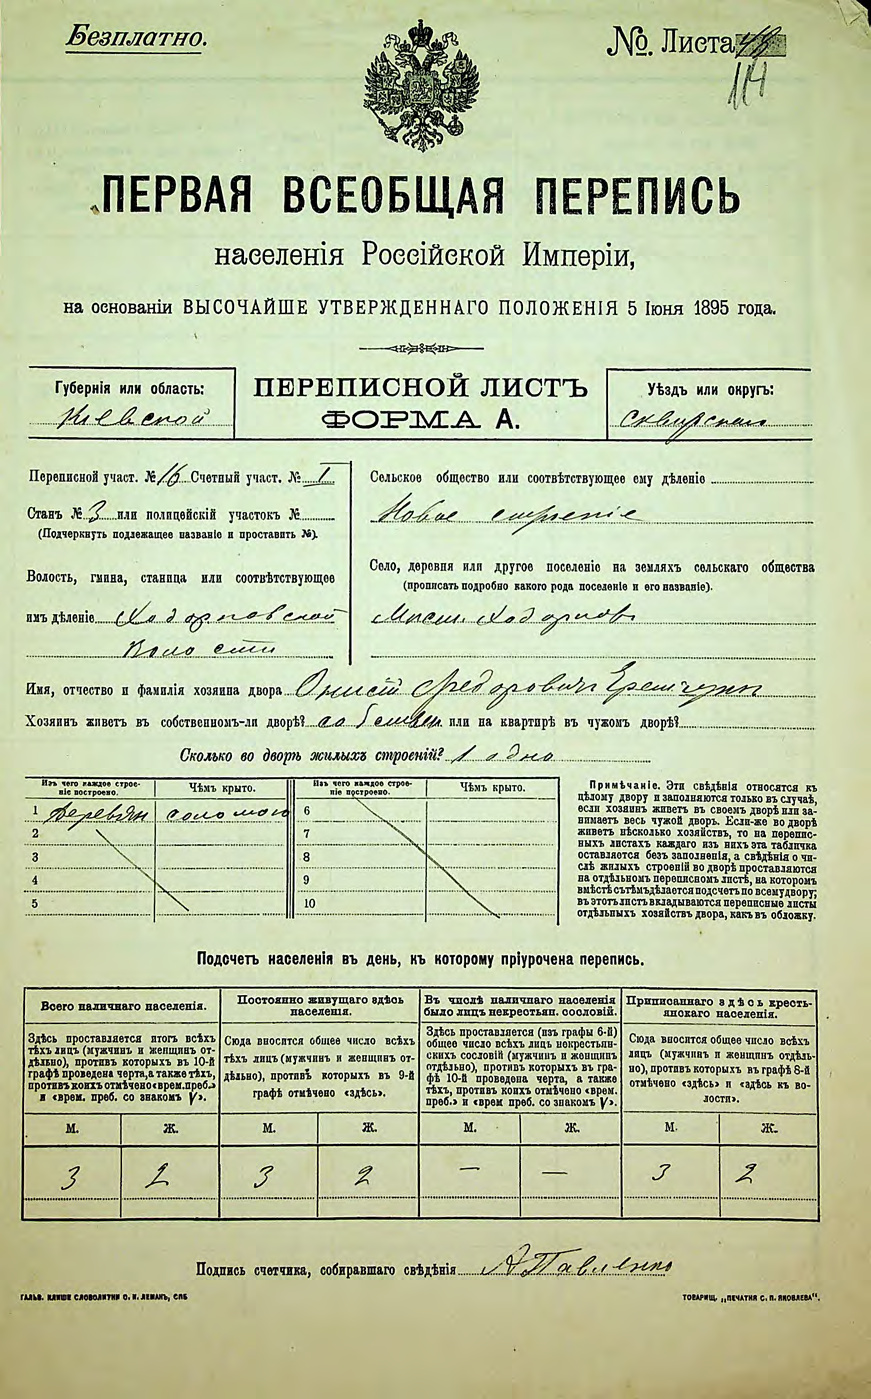 Безплатно.
№. Листа
114
ПЕРВАЯ ВСЕОБЩАЯ ПЕРЕПИСЬ
населенія Россійской Имперіи,
на основаніи ВЫСОЧАЙШЕ УТВЕРЖДЕННАГО ПОЛОЖЕНІЯ 5 Іюня 1895 года.
Губернія или область:
Кіевской
ПЕРЕПИСНОЙ ЛИСТЪ
ФОРМА А.
Уѣздъ или округъ:
Сквирскаго
Переписной участ. № 16 Счетный участ. № I
Станъ № 3 или полицейскій участокъ №
(Подчеркнуть подлежащее названіе и проставить №).
Волость, гмина, станица или соотвѣтствующее
имъ дѣленіе Ходорковской
Волости
Сельское общество или соотвѣтствующее ему дѣленіе
Новое
Село, деревня или другое поселеніе на земляхъ сельскаго общества
(прописать подробно какого рода поселеніе и его названіе).
Ходорков
Имя, отчество и фамилія хозяина двора Онисій Федорович
Хозяинъ живетъ въ собственномъ-ли дворѣ? собствен. или на квартирѣ въ чужомъ дворѣ?
Сколько во дворѣ жилыхъ строеній? 1 одно
Изъ чего каждое строеніе построено.
Чѣмъ крыто.
Изъ чего каждое строеніе построено.
Чѣмъ крыто.
1 деревян соломою
2
3
4
5
6
7
8
9
10
Примѣчаніе. Эти свѣдѣнія относятся къ
цѣлому двору и заполняются только въ случаѣ,
если хозяинъ живетъ въ своемъ дворѣ или занимаетъ
весь чужой дворъ. Если-же во дворѣ
живетъ нѣсколько хозяйствъ, то на переписныхъ
листахъ каждаго изъ нихъ эта табличка
оставляется безъ заполненія, а свѣдѣнія о числѣ
жилыхъ строеній во дворѣ проставляются
на отдѣльномъ переписномъ листѣ, на которомъ
вмѣстѣ съ тѣмъ дѣлается подсчетъ по всему двору;
въ этотъ листъ вкладываются переписные листы
отдѣльныхъ хозяйствъ двора, какъ въ обложку.
Подсчетъ населенія въ день, къ которому пріурочена перепись.
Всего наличнаго населенія.
Здѣсь проставляется итогъ всѣхъ
тѣхъ лицъ (мужчинъ и женщинъ отдѣльно),
противъ которыхъ въ 10-й
графѣ проведена черта, а также тѣхъ,
противъ коихъ отмѣчено «врем. преб.»
и «врем. преб. со знакомъ V».
Постоянно живущаго здѣсь
населенія.
Сюда вносится общее число всѣхъ
тѣхъ лицъ (мужчинъ и женщинъ отдѣльно),
противъ которыхъ въ 9-й
графѣ отмѣчено «здѣсь».
Въ числѣ наличнаго населенія
было лицъ некрестьян. сословій.
Здѣсь проставляется (изъ графы 6-й)
общее число всѣхъ лицъ некрестьянскихъ
сословій (мужчинъ и женщинъ
отдѣльно), противъ которыхъ въ графѣ
10-й проведена черта, а также
тѣхъ, противъ коихъ отмѣчено «врем.
преб.» и «врем преб. со знакомъ V».
Приписаннаго здѣсь крестьянскаго
населенія.
Сюда вносится общее число всѣхъ
лицъ (мужчинъ и женщинъ отдѣльно),
противъ которыхъ въ графѣ 8-й
отмѣчено «здѣсь» и «здѣсь къ волости».
М. Ж. М. Ж. М. Ж. М. Ж.
3 2 3 2 — — 3 2
Подпись счетчика, собиравшаго свѣдѣнія А Павленко
ГАЛЬВ. КЛИШЕ СЛОВОЛИТНИ О. И. ЛЕМАНЪ, СПБ
ТОВАРИЩ. „ПЕЧАТНЯ С. П. ЯКОВЛЕВА“.